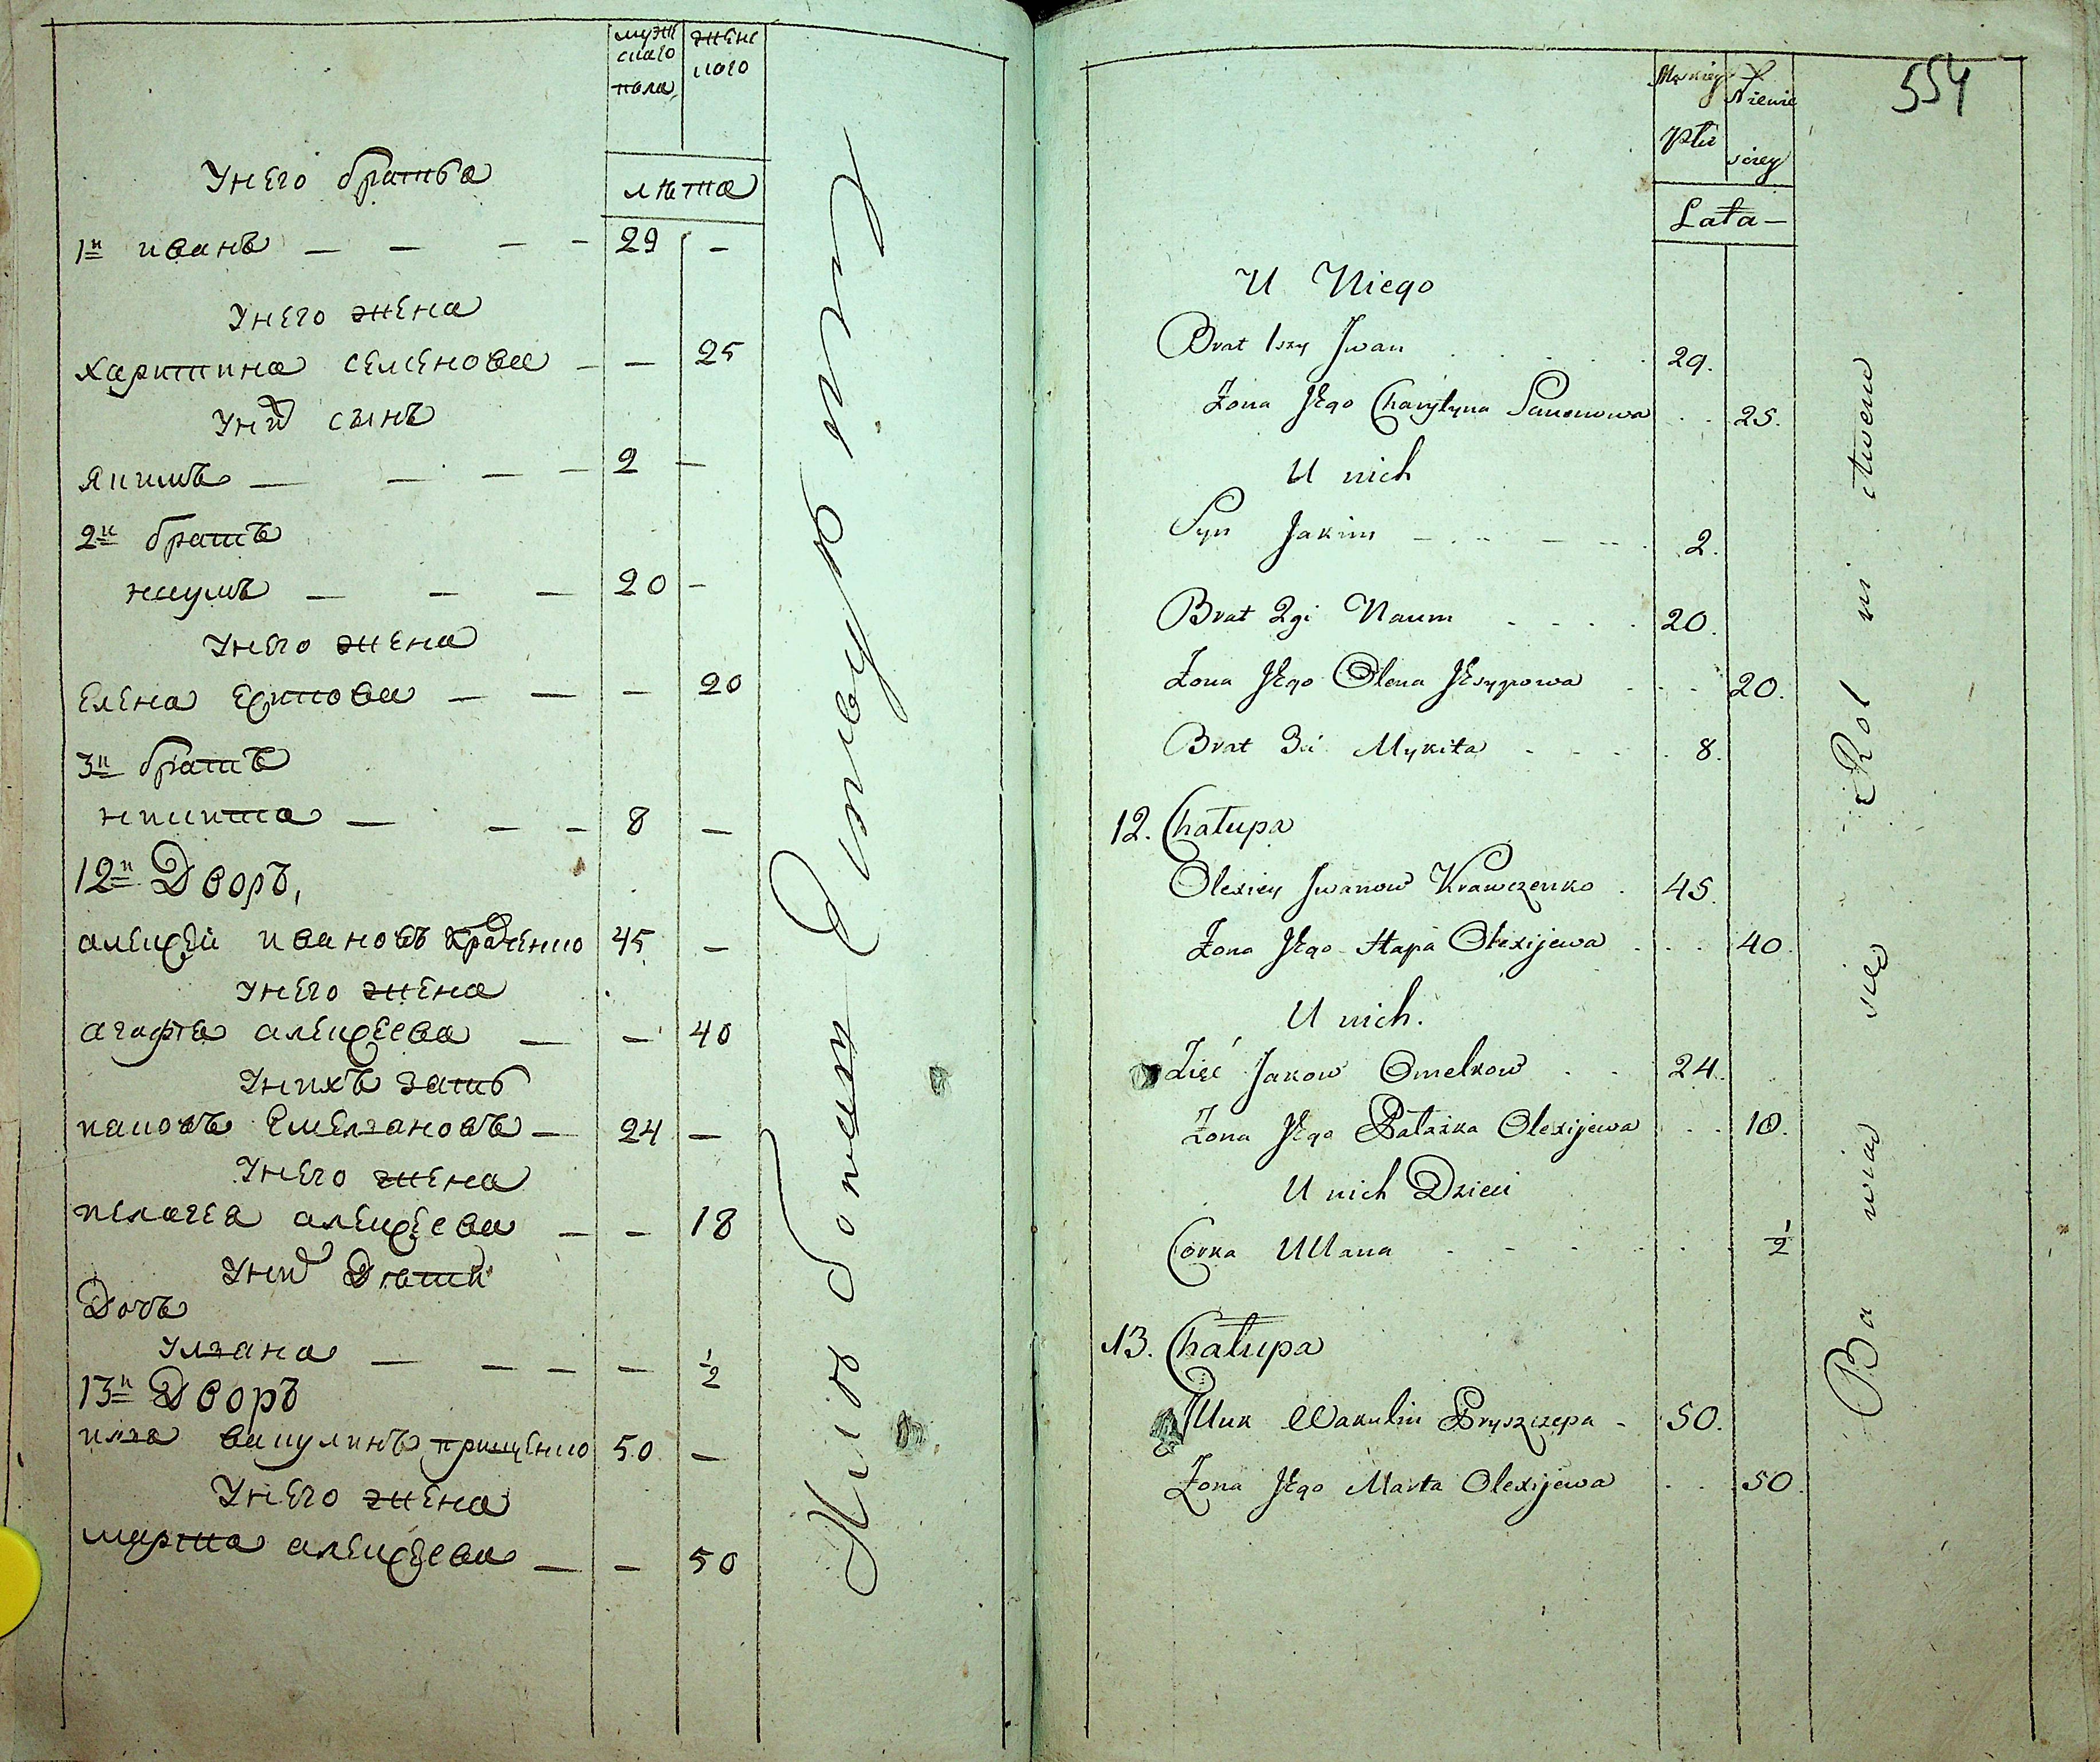 мужскаго пола
женскаго
лѣта
У него братья
1й иванъ — — — — 29 —
У него жена
харитина семенова — — 25
У них сынъ
якимъ — — — — 2 —
2й братъ
наумъ — — — 20 —
У него жена
елена есипова — — — 20
3й братъ
никита — — — 8 —
12й Дворъ,
алексей ивановъ кравченко 45 —
У него жена
агафія алексеева — — 40
У нихъ зать
яковъ Емельяновъ — 24 —
У него жена
пелагея алексеева — — 18
У них Дѣти
Дочь
Ульяна — — — — ½
13й Дворъ
илья вакулинъ прищенко 50 —
У него жена
марта алексеева — — 50
554
Męskiey Płci
Niewieściey
Lata —
U Niego
Brat 1szy Jwan . . . . 29.
Żona Jego Charytyna Semenowa . . 25.
U nich
Syn Jakim — — — 2.
Brat 2gi Naum . . . . 20.
Żona Jego Olena Jesypowa . . . 20.
Brat 3ci Mykita . . . . 8.
12. Chałupa
Olexiey Jwanow Krawczenko . 45.
Żona Jego Hapa Olexijewa . . . 40.
U nich.
Zięć Jakow Omelkow . . 24.
Żona Jego Pałażka Olexijewa . . 18.
U nich Dzieci
Corka Ullana . . . . . ½
13. Chałupa
Illuk Wakulin Pryszczepa - 50.
Żona Jego Marta Olexijewa . . . 50.
Ba wia się Rol ni ctwem